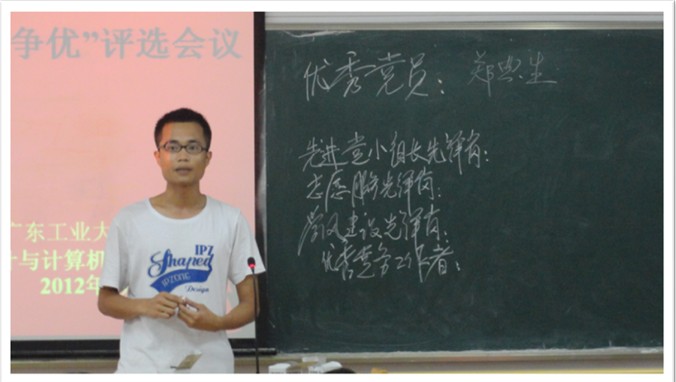 争优”评选会议
广东工业大
计与计算机
2012年
优秀党员：郑典生
先进党小组长先锋岗：
志愿服务先锋岗：
学风建设先锋岗：
优秀党务工作者：
IPZ
Shaped
IPZONE
Design